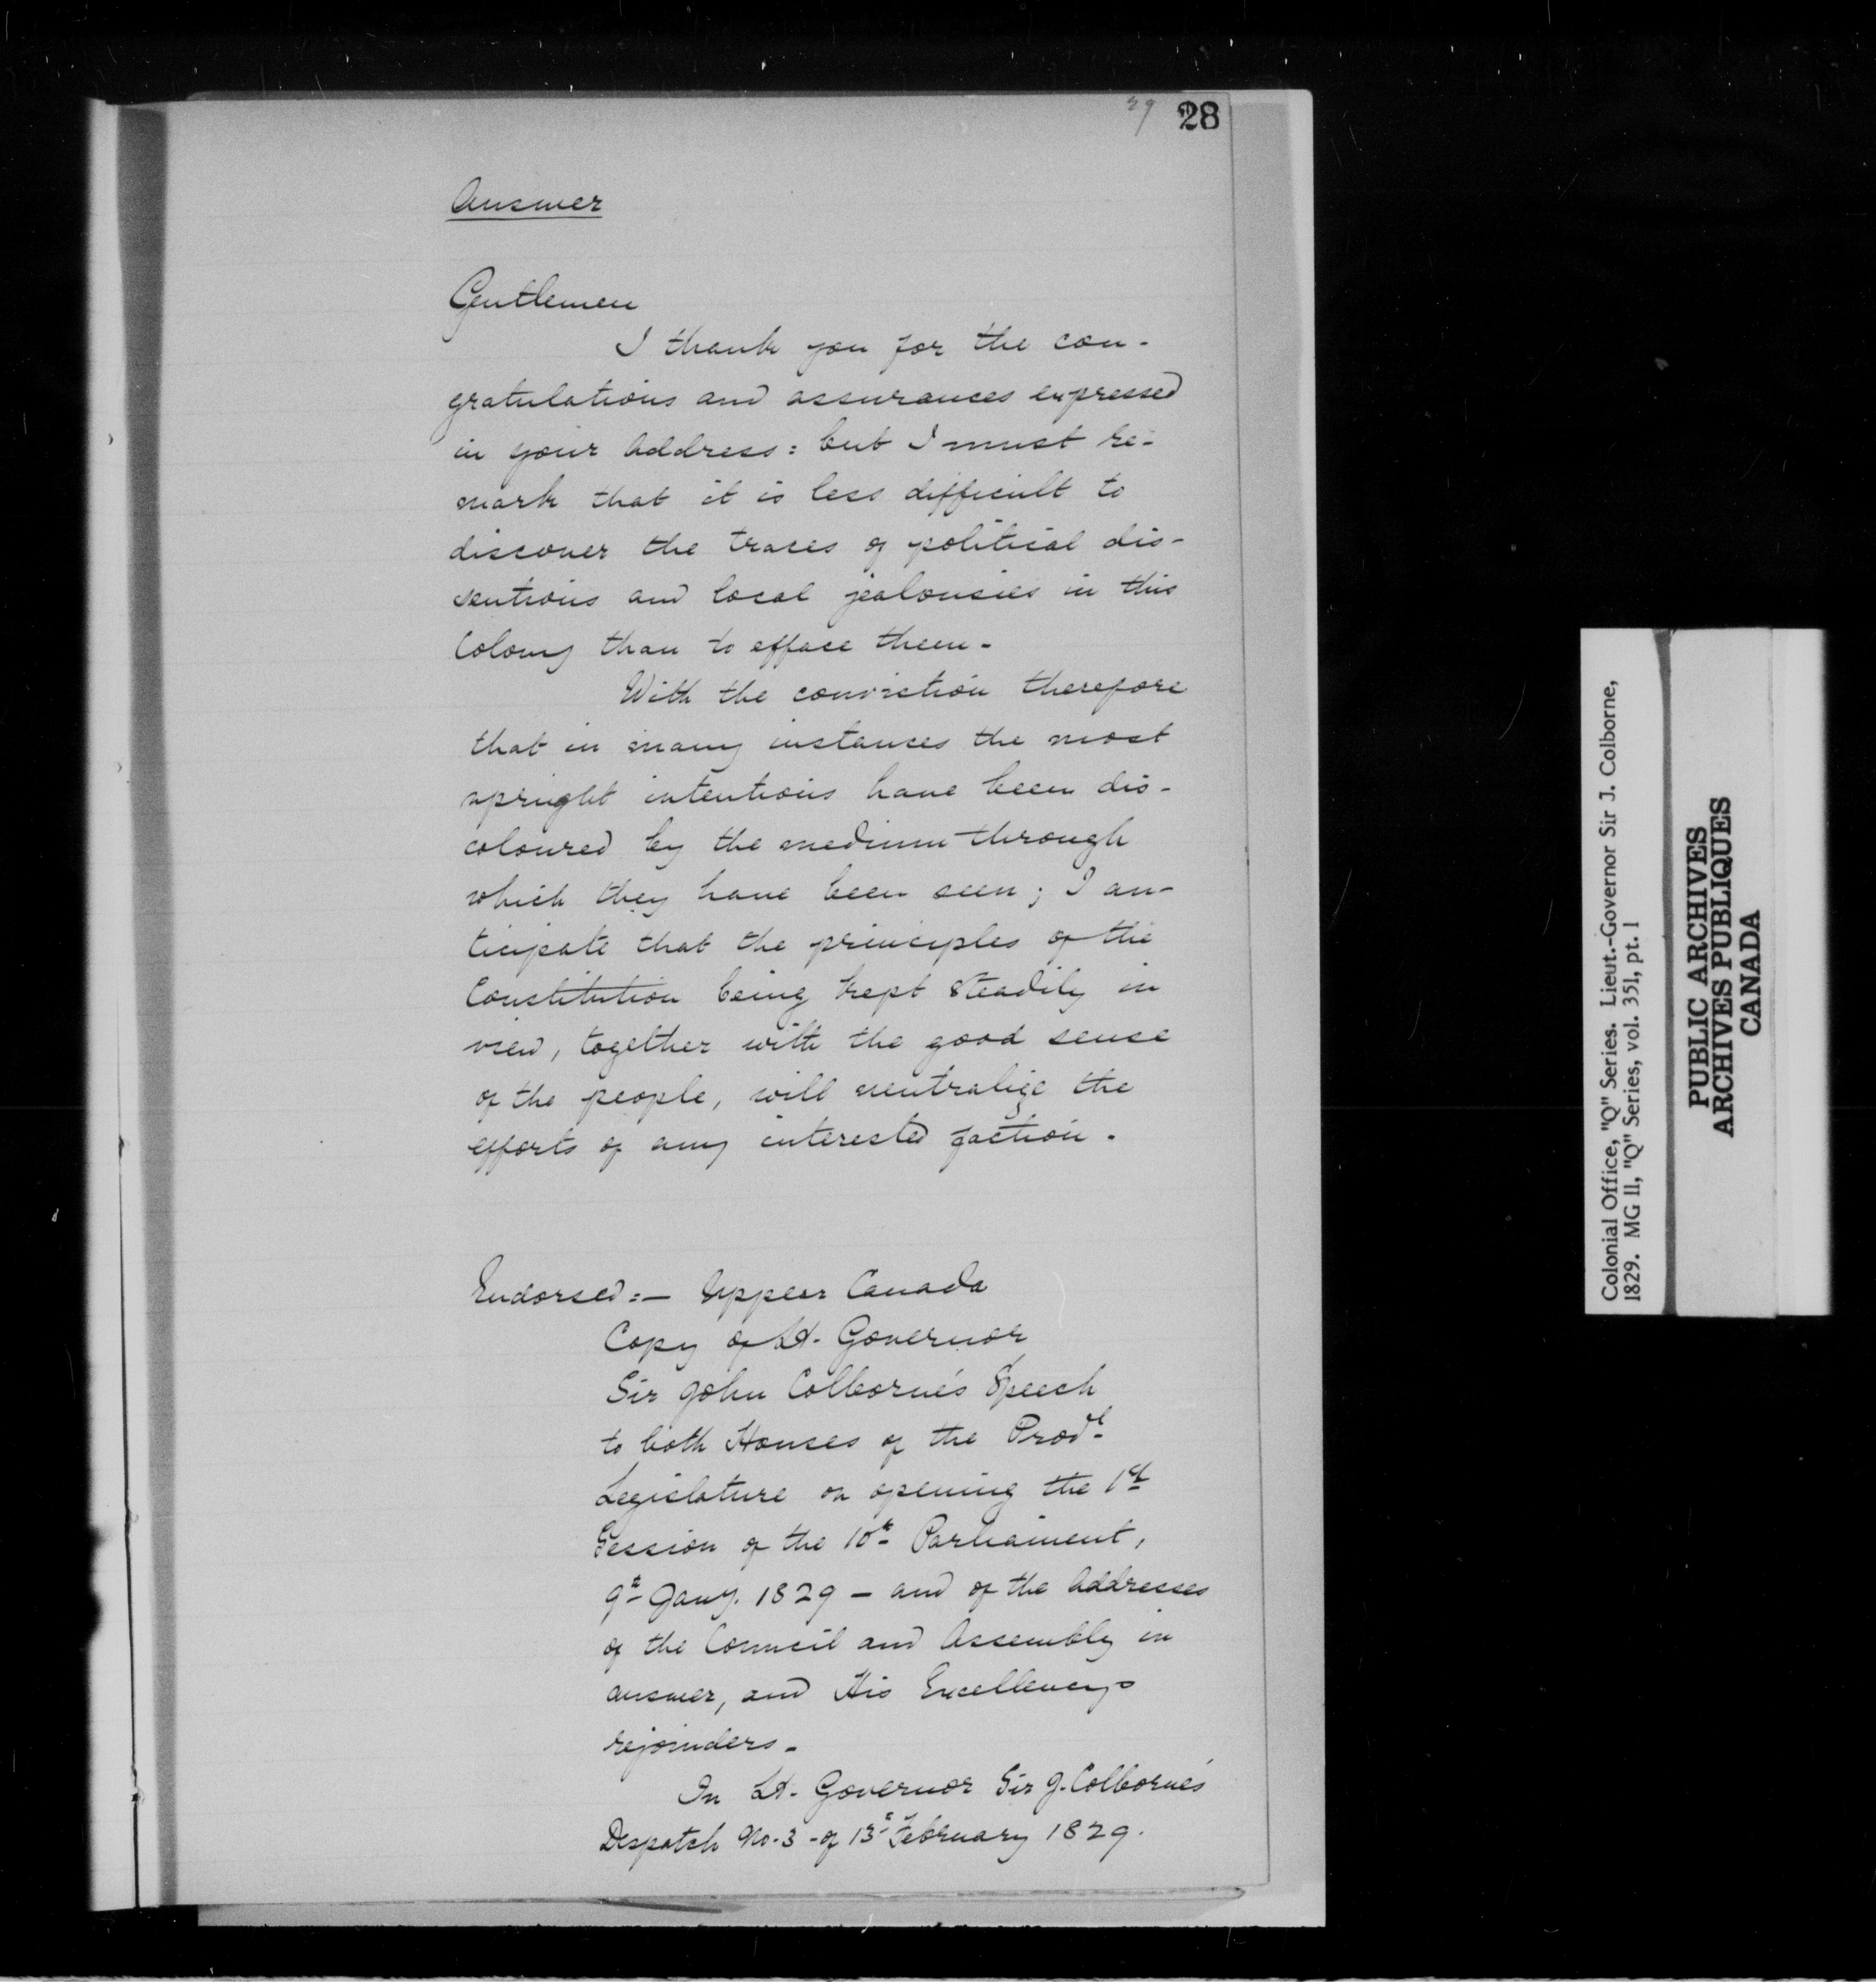 29 28
Answer
Gentlemen
I thank you for the con-
gratulations and assurances expressed
in your Address: but I must re-
mark that it is less difficult to
discover the traces of political dis-
sentions and local jealousies in this
Colony than to efface them-
With the conviction therefore
that in many instances the most
upright intentions have been dis-
coloured by the medium through
which they have been seen; I an-
ticipate that the principles of the
Constitution being kept steadily in
view, together with the good sense
of the people, will neutralize the
efforts of any interested faction.
Endorsed:- Upper Canada
Copy of Lt. Governor
Sir John Colborne's Speech
to both Houses of the Provl
Legislature on opening the 1st
Session of the 10th Parliament,
9th Jany. 1829 - and of the Addresses
of the Council and Assembly in
answer, and His Excellency's
rejoinders-
In Lt. Governor Sir J. Colborne's
Despatch No. 3 - of 13th February 1829.
Colonial Office, "Q" Series. Lieut.-Governor Sir J. Colborne,
1829. MG 11, "Q" Series, vol. 351, pt. 1
PUBLIC ARCHIVES
ARCHIVES PUBLIQUES
CANADA